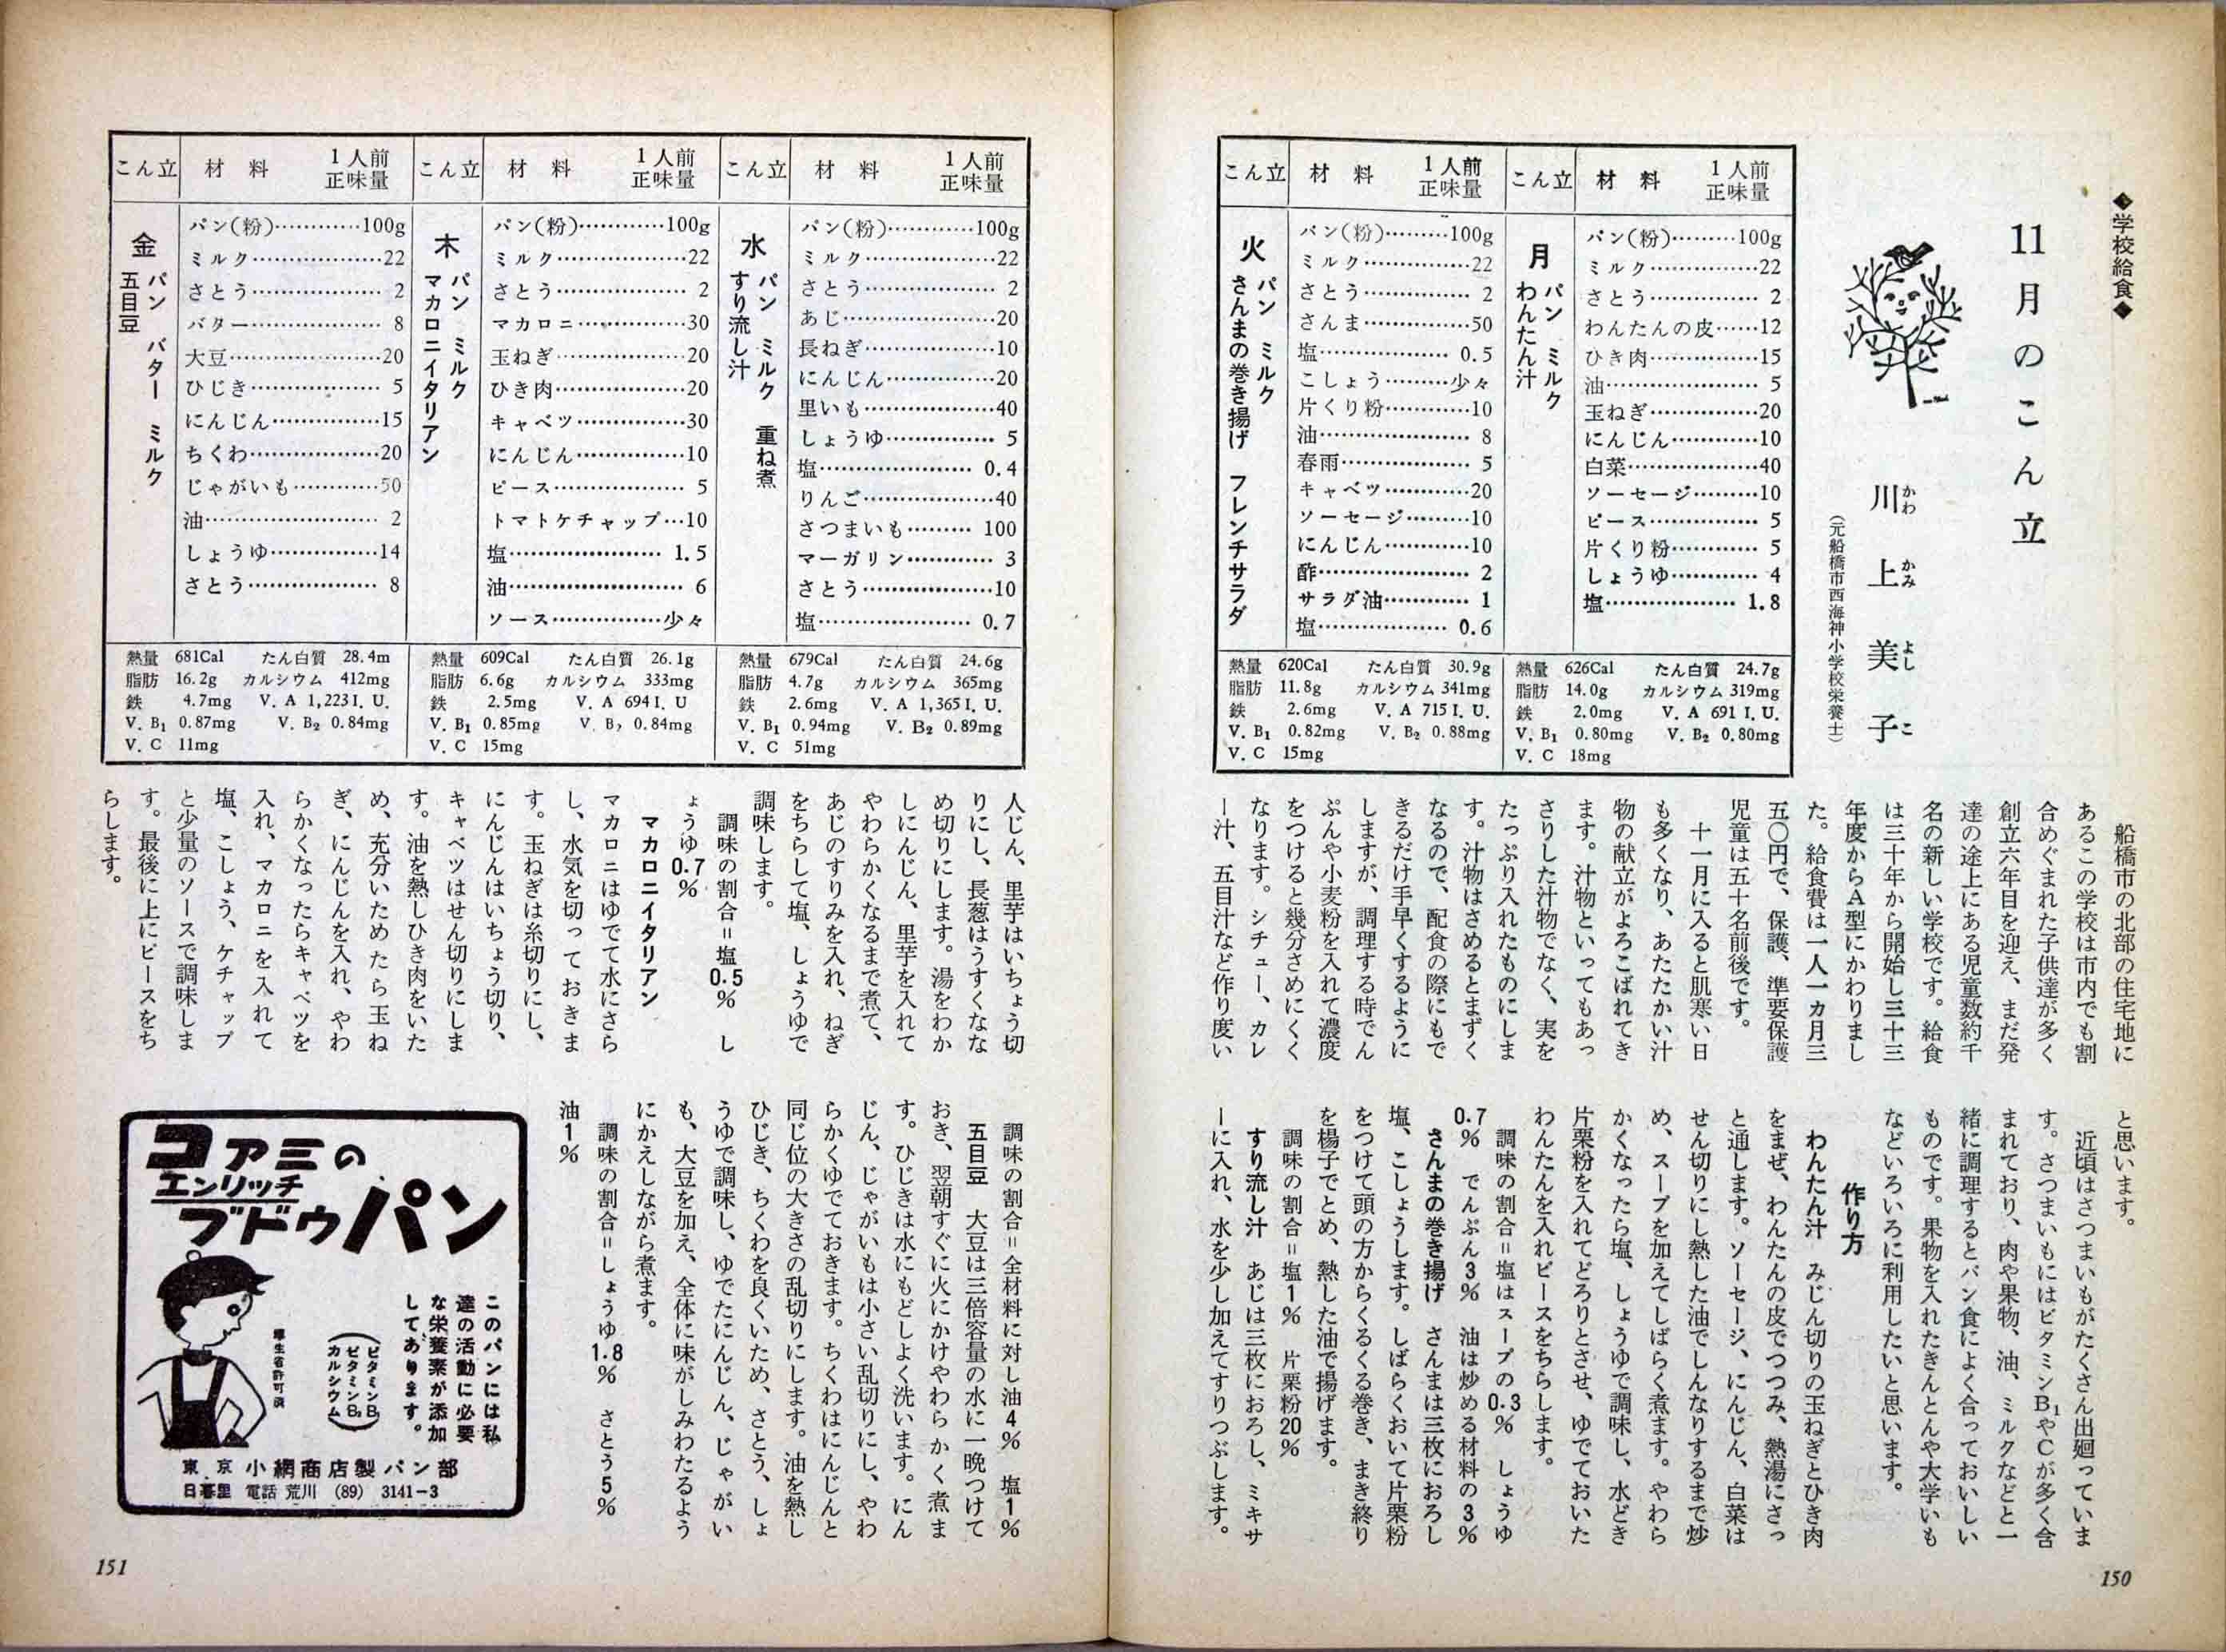 ◆学校給食◆
11月のこん立
川上美子
かわかみよしこ
(元船橋市西海神小学校栄養士)
こん立 材料 1人前正味量
月 パン ミルク
わんたん汁
パン(粉)………100g
ミルク……………22
さとう…………… 2
わんたんの皮……12
ひき肉……………15
油………………… 5
玉ねぎ……………20
にんじん…………10
白菜………………40
ソーセージ………10
ピース…………… 5
片くり粉………… 5
しょうゆ………… 4
塩……………… 1.8
熱量 626Cal たん白質 24.7g
脂肪 14.0g カルシウム 319mg
鉄 2.0mg V. A 691 I. U.
V. B₁ 0.80mg V. B₂ 0.80mg
V. C 18mg
こん立 材料 1人前正味量
火 パン ミルク
さんまの巻き揚げ フレンチサラダ
パン(粉)………100g
ミルク……………22
さとう…………… 2
さんま……………50
塩……………… 0.5
こしょう………少々
片くり粉…………10
油………………… 8
春雨……………… 5
キャベツ…………20
ソーセージ………10
にんじん…………10
酢………………… 2
サラダ油………… 1
塩……………… 0.6
熱量 620Cal たん白質 30.9g
脂肪 11.8g カルシウム 341mg
鉄 2.6mg V. A 715 I. U.
V. B₁ 0.82mg V. B₂ 0.88mg
V. C 15mg
船橋市の北部の住宅地に
あるこの学校は市内でも割
合めぐまれた子供達が多く
創立六年目を迎え、まだ発
達の途上にある児童数約千
名の新しい学校です。給食
は三十年から開始し三十三
年度からA型にかわりまし
た。給食費は一人一カ月三
五〇円で、保護、準要保護
児童は五十名前後です。
十一月に入ると肌寒い日
も多くなり、あたたかい汁
物の献立がよろこばれてき
ます。汁物といってもあっ
さりした汁物でなく、実を
たっぷり入れたものにしま
す。汁物はさめるとまずく
なるので、配食の際にもで
きるだけ手早くするように
しますが、調理する時でん
ぷんや小麦粉を入れて濃度
をつけると幾分さめにくく
なります。シチュー、カレ
ー汁、五目汁など作り度い
と思います。
近頃はさつまいもがたくさん出廻っていま
す。さつまいもにはビタミンB₁やCが多く含
まれており、肉や果物、油、ミルクなどと一
緒に調理するとパン食によく合っておいしい
ものです。果物を入れたきんとんや大学いも
などいろいろに利用したいと思います。
作り方
わんたん汁 みじん切りの玉ねぎとひき肉
をまぜ、わんたんの皮でつつみ、熱湯にさっ
と通します。ソーセージ、にんじん、白菜は
せん切りにし熱した油でしんなりするまで炒
め、スープを加えてしばらく煮ます。やわら
かくなったら塩、しょうゆで調味し、水どき
片栗粉を入れてどろりとさせ、ゆでておいた
わんたんを入れピースをちらします。
調味の割合=塩はスープの0.3% しょうゆ
0.7% でんぷん3% 油は炒める材料の3%
さんまの巻き揚げ さんまは三枚におろし
塩、こしょうします。しばらくおいて片栗粉
をつけて頭の方からくるくる巻き、まき終り
を楊子でとめ、熱した油で揚げます。
調味の割合=塩1% 片栗粉20%
すり流し汁 あじは三枚におろし、ミキサ
ーに入れ、水を少し加えてすりつぶします。
150
こん立 材料 1人前正味量
水 パン ミルク 重ね煮
すり流し汁
パン(粉)…………100g
ミルク………………22
さとう……………… 2
あじ…………………20
長ねぎ………………10
にんじん……………20
里いも………………40
しょうゆ…………… 5
塩………………… 0.4
りんご………………40
さつまいも……… 100
マーガリン………… 3
さとう………………10
塩………………… 0.7
熱量 679Cal たん白質 24.6g
脂肪 4.7g カルシウム 365mg
鉄 2.6mg V. A 1,365 I. U.
V. B₁ 0.94mg V. B₂ 0.89mg
V. C 51mg
こん立 材料 1人前正味量
木 パン ミルク
マカロニイタリアン
パン(粉)…………100g
ミルク………………22
さとう……………… 2
マカロニ……………30
玉ねぎ………………20
ひき肉………………20
キャベツ……………30
にんじん……………10
ピース……………… 5
トマトケチャップ…10
塩………………… 1.5
油…………………… 6
ソース……………少々
熱量 609Cal たん白質 26.1g
脂肪 6.6g カルシウム 333mg
鉄 2.5mg V. A 694 I. U
V. B₁ 0.85mg V. B₂ 0.84mg
V. C 15mg
こん立 材料 1人前正味量
金 パン バター ミルク
五目豆
パン(粉)…………100g
ミルク………………22
さとう……………… 2
バター……………… 8
大豆…………………20
ひじき……………… 5
にんじん……………15
ちくわ………………20
じゃがいも…………50
油…………………… 2
しょうゆ……………14
さとう……………… 8
熱量 681Cal たん白質 28.4m
脂肪 16.2g カルシウム 412mg
鉄 4.7mg V. A 1,223 I. U.
V. B₁ 0.87mg V. B₂ 0.84mg
V. C 11mg
人じん、里芋はいちょう切
りにし、長葱はうすくなな
め切りにします。湯をわか
しにんじん、里芋を入れて
やわらかくなるまで煮て、
あじのすりみを入れ、ねぎ
をちらして塩、しょうゆで
調味します。
調味の割合=塩0.5% し
ょうゆ0.7%
マカロニイタリアン
マカロニはゆでて水にさら
し、水気を切っておきま
す。玉ねぎは糸切りにし、
にんじんはいちょう切り、
キャベツはせん切りにしま
す。油を熱しひき肉をいた
め、充分いためたら玉ね
ぎ、にんじんを入れ、やわ
らかくなったらキャベツを
入れ、マカロニを入れて
塩、こしょう、ケチャップ
と少量のソースで調味しま
す。最後に上にピースをち
らします。
調味の割合=全材料に対し油4% 塩1%
五目豆 大豆は三倍容量の水に一晩つけて
おき、翌朝すぐに火にかけやわらかく煮ま
す。ひじきは水にもどしよく洗います。にん
じん、じゃがいもは小さい乱切りにし、やわ
らかくゆでておきます。ちくわはにんじんと
同じ位の大きさの乱切りにします。油を熱し
ひじき、ちくわを良くいため、さとう、しょ
うゆで調味し、ゆでたにんじん、じゃがい
も、大豆を加え、全体に味がしみわたるよう
にかえしながら煮ます。
調味の割合=しょうゆ1.8% さとう5%
油1%
コアミの
エンリッチ
ブドウパン
このパンには私
達の活動に必要
な栄養素が添加
してあります。
(ビタミンB₁
ビタミンB₂
カルシウム)
厚生省許可済
東京 小網商店製パン部
日暮里 電話 荒川 (89) 3141-3
151